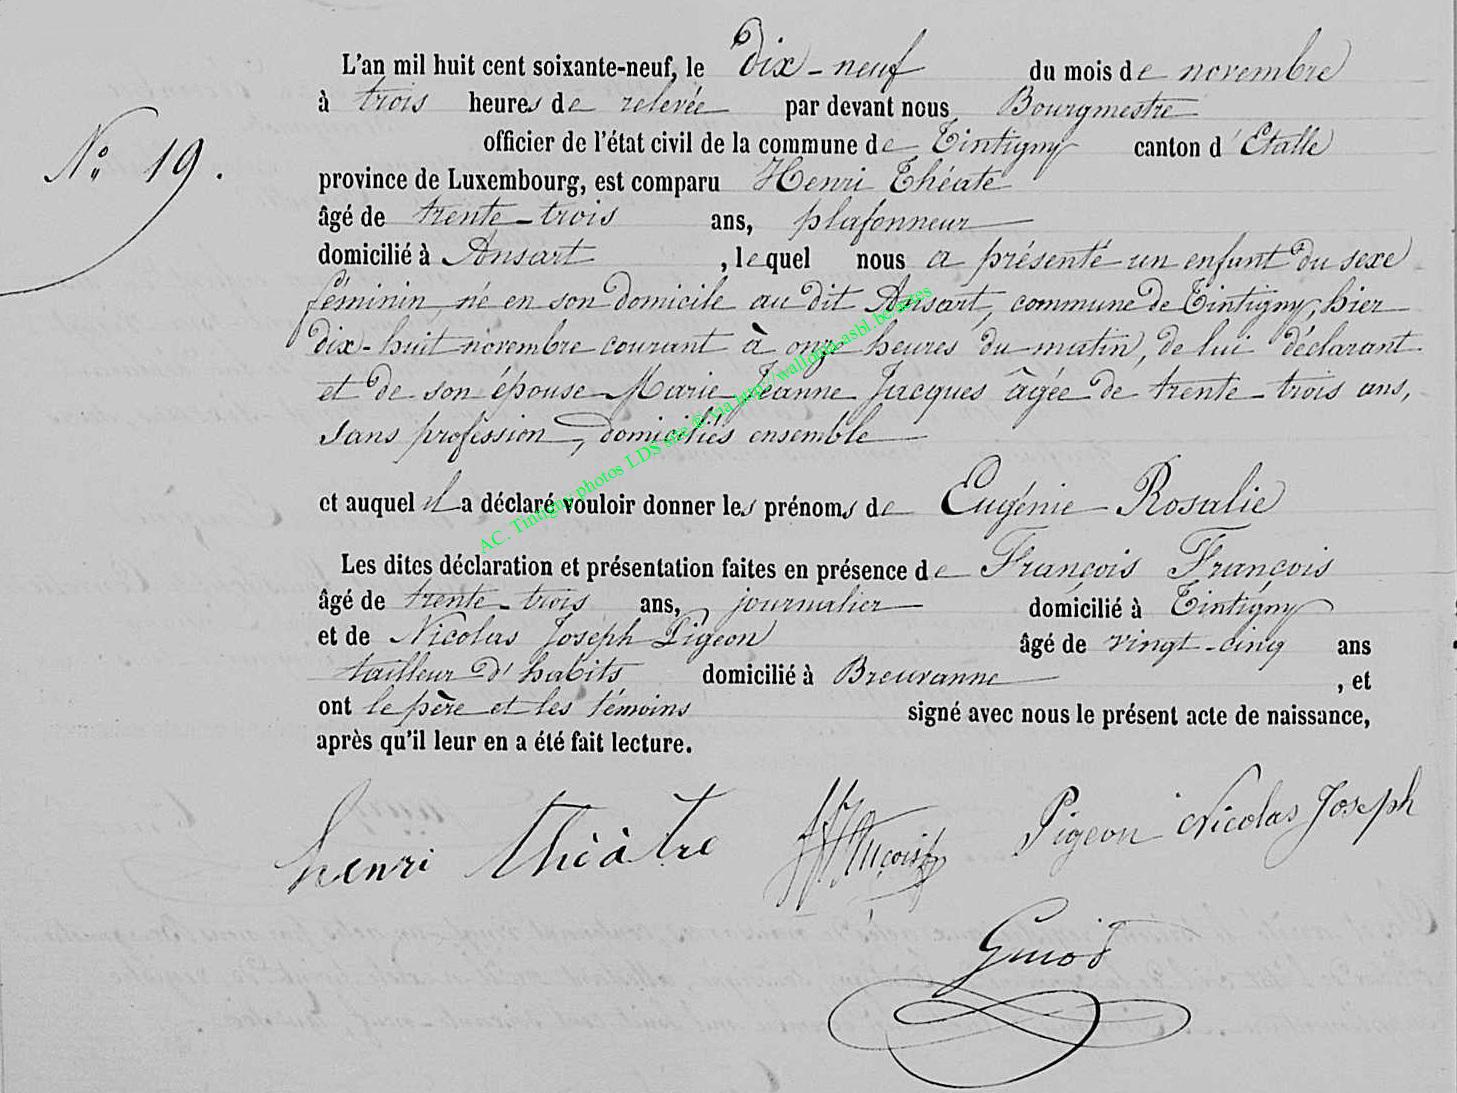 L'an mil huit cent soixante-neuf, le dix-neuf du mois de novembre
à trois heures de relevée par devant nous Bourgmestre
officier de l'état civil de la commune de Tintigny canton d'Etalle
N° 19.
province de Luxembourg, est comparu Henri Théate
âgé de trente-trois ans, plafonneur
domicilié à Ansart, lequel nous a présenté un enfant du sexe
féminin, né en son domicile au dit Ansart, commune de Tintigny, hier
dix-huit novembre courant à onze heures du matin, de lui déclarant
et de son épouse Marie Jeanne Jacques âgée de trente-trois ans,
sans profession, domiciliés ensemble
et auquel il a déclaré vouloir donner les prénoms de Eugénie Rosalie
Les dites déclaration et présentation faites en présence de François François
âgé de trente-trois ans, journalier domicilié à Tintigny
et de Nicolas Joseph Pigeon âgé de vingt-cinq ans
tailleur d'habits domicilié à Breuvanne, et
ont le père et les témoins signé avec nous le présent acte de naissance,
après qu'il leur en a été fait lecture.
henri thèàtre
Pigeon Nicolas Joseph
AC. Tintigny photos LDS site & via http://wallonia-asbl.be/actes